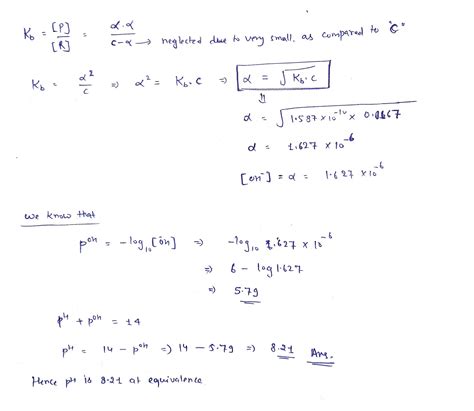 Kb = [P]/[R] = α.α/c-α → neglected due to very small, as compared to "C"
Kb = α²/c => α² = Kb.C => α = √Kb.c
⇓
α = √1.587 x 10⁻¹⁰ x 0.0167
α = 1.627 x 10⁻⁶
[OH⁻] = α = 1.627 x 10⁻⁶
we know that
pOH = -log₁₀[OH] => -log₁₀ 1.627 x 10⁻⁶
=> 6 - log 1.627
=> 5.79
pH + pOH = 14
pH = 14 - pOH => 14 - 5.79 => 8.21 Ans.
Hence pH is 8.21 at equivalence